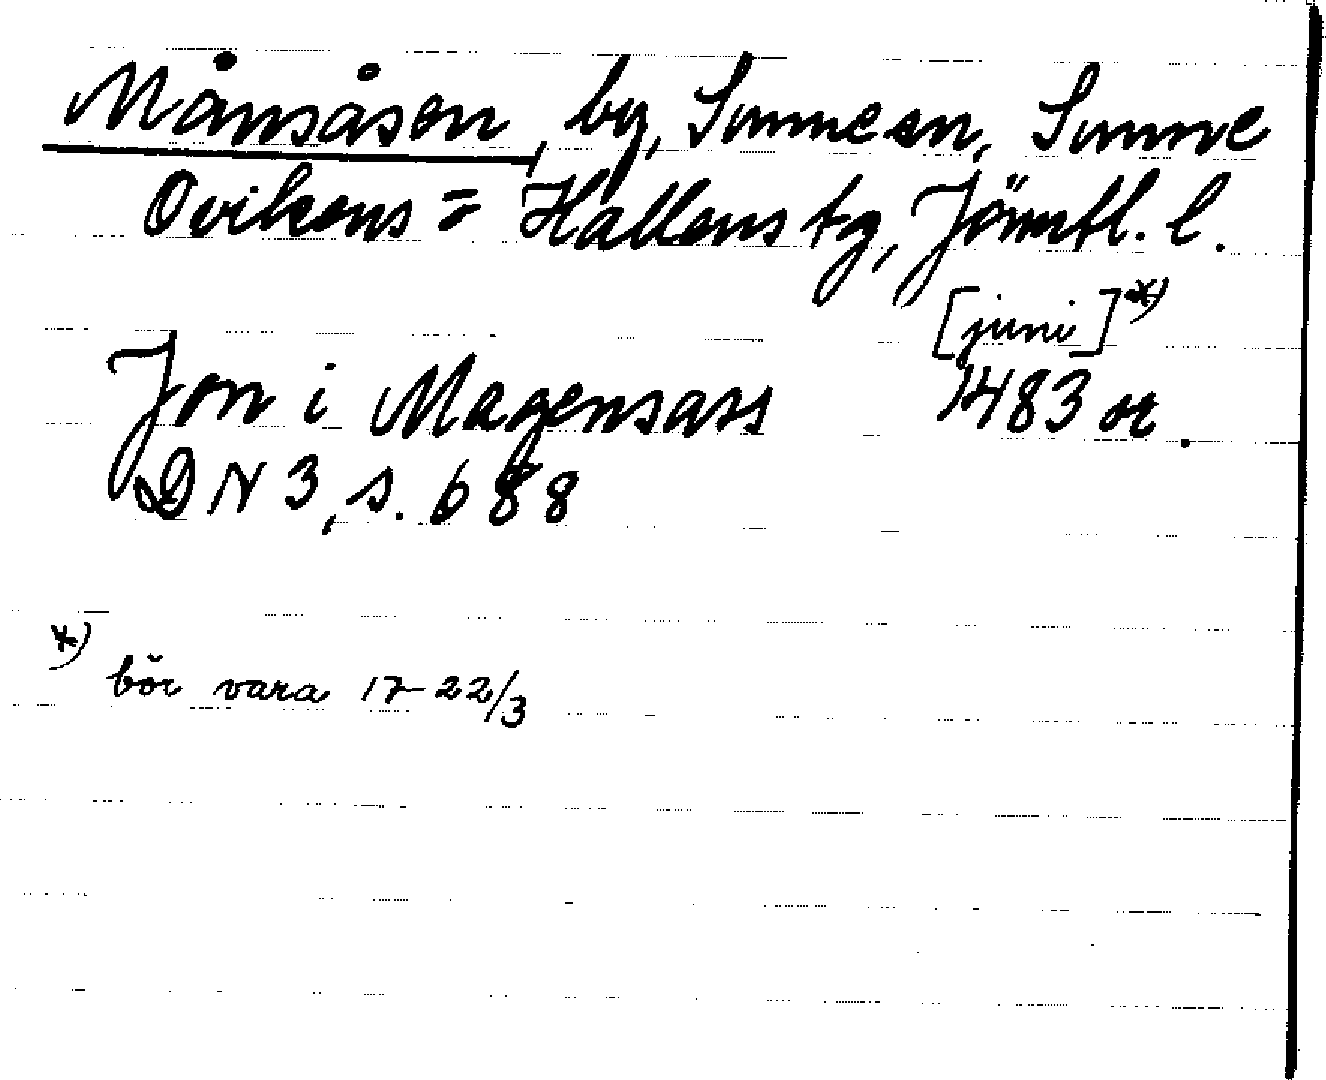 Månsåsen, by, Sunne sn, Sunne
Ovikens = Hallens tg, Jämtl. l.
[juni] x)
Jon i Magensass 1483 or.
DN 3, s. 688
x) bör vara 17-22/3